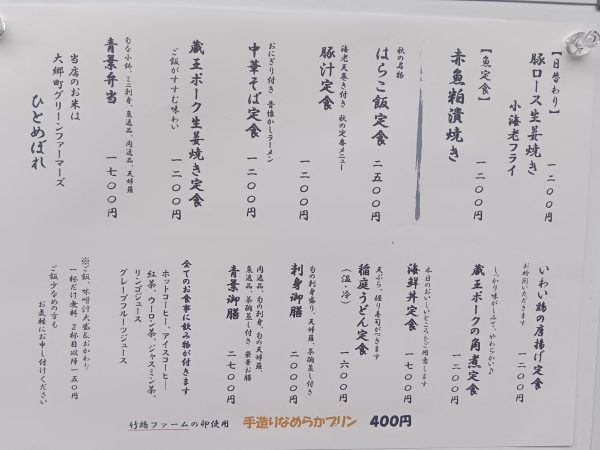 【日替わり】
豚ロース生姜焼き
小海老フライ
一二〇〇円
【魚定食】
赤魚粕漬焼き
一二〇〇円
秋の名物
はらこ飯定食
二五〇〇円
海老天巻き付き 秋の定番メニュー
豚汁定食
一二〇〇円
おにぎり付き 昔懐かしラーメン
中華そば定食
一二〇〇円
蔵王ポーク生姜焼き定食
ご飯がすすむ味わい
一二〇〇円
青葉弁当
旬な小鉢、ミニ刺身、魚逸品、肉逸品、天婦羅
一七〇〇円
当店のお米は
大郷町グリーンファーマーズ
ひとめぼれ
いわい鶏の唐揚げ定食
お時間いただきます
一二〇〇円
蔵王ポークの角煮定食
しっかり味がしみて、やわらかい♪
一二〇〇円
本日のおいしいどころをご用意します
海鮮丼定食
一七〇〇円
天ぷら、握り寿司ができます
稲庭うどん定食
(温・冷)
一六〇〇円
旬の刺身盛り、天婦羅、茶碗蒸し付き
刺身御膳
二〇〇〇円
肉逸品、旬の刺身、旬の天婦羅、
魚逸品、茶碗蒸し付き 豪華お膳
青葉御膳
二七〇〇円
全てのお食事に飲み物が付きます
ホットコーヒー、アイスコーヒー
紅茶、ウーロン茶、ジャスミン茶、
リンゴジュース
グレープフルーツジュース
※ご飯、味噌汁大盛&おかわり
一杯だけ無料 2杯目以降一五〇円
ご飯少なめの方も
お気軽にお申し付けください
竹鶏ファームの卵使用 手造りなめらかプリン 400円